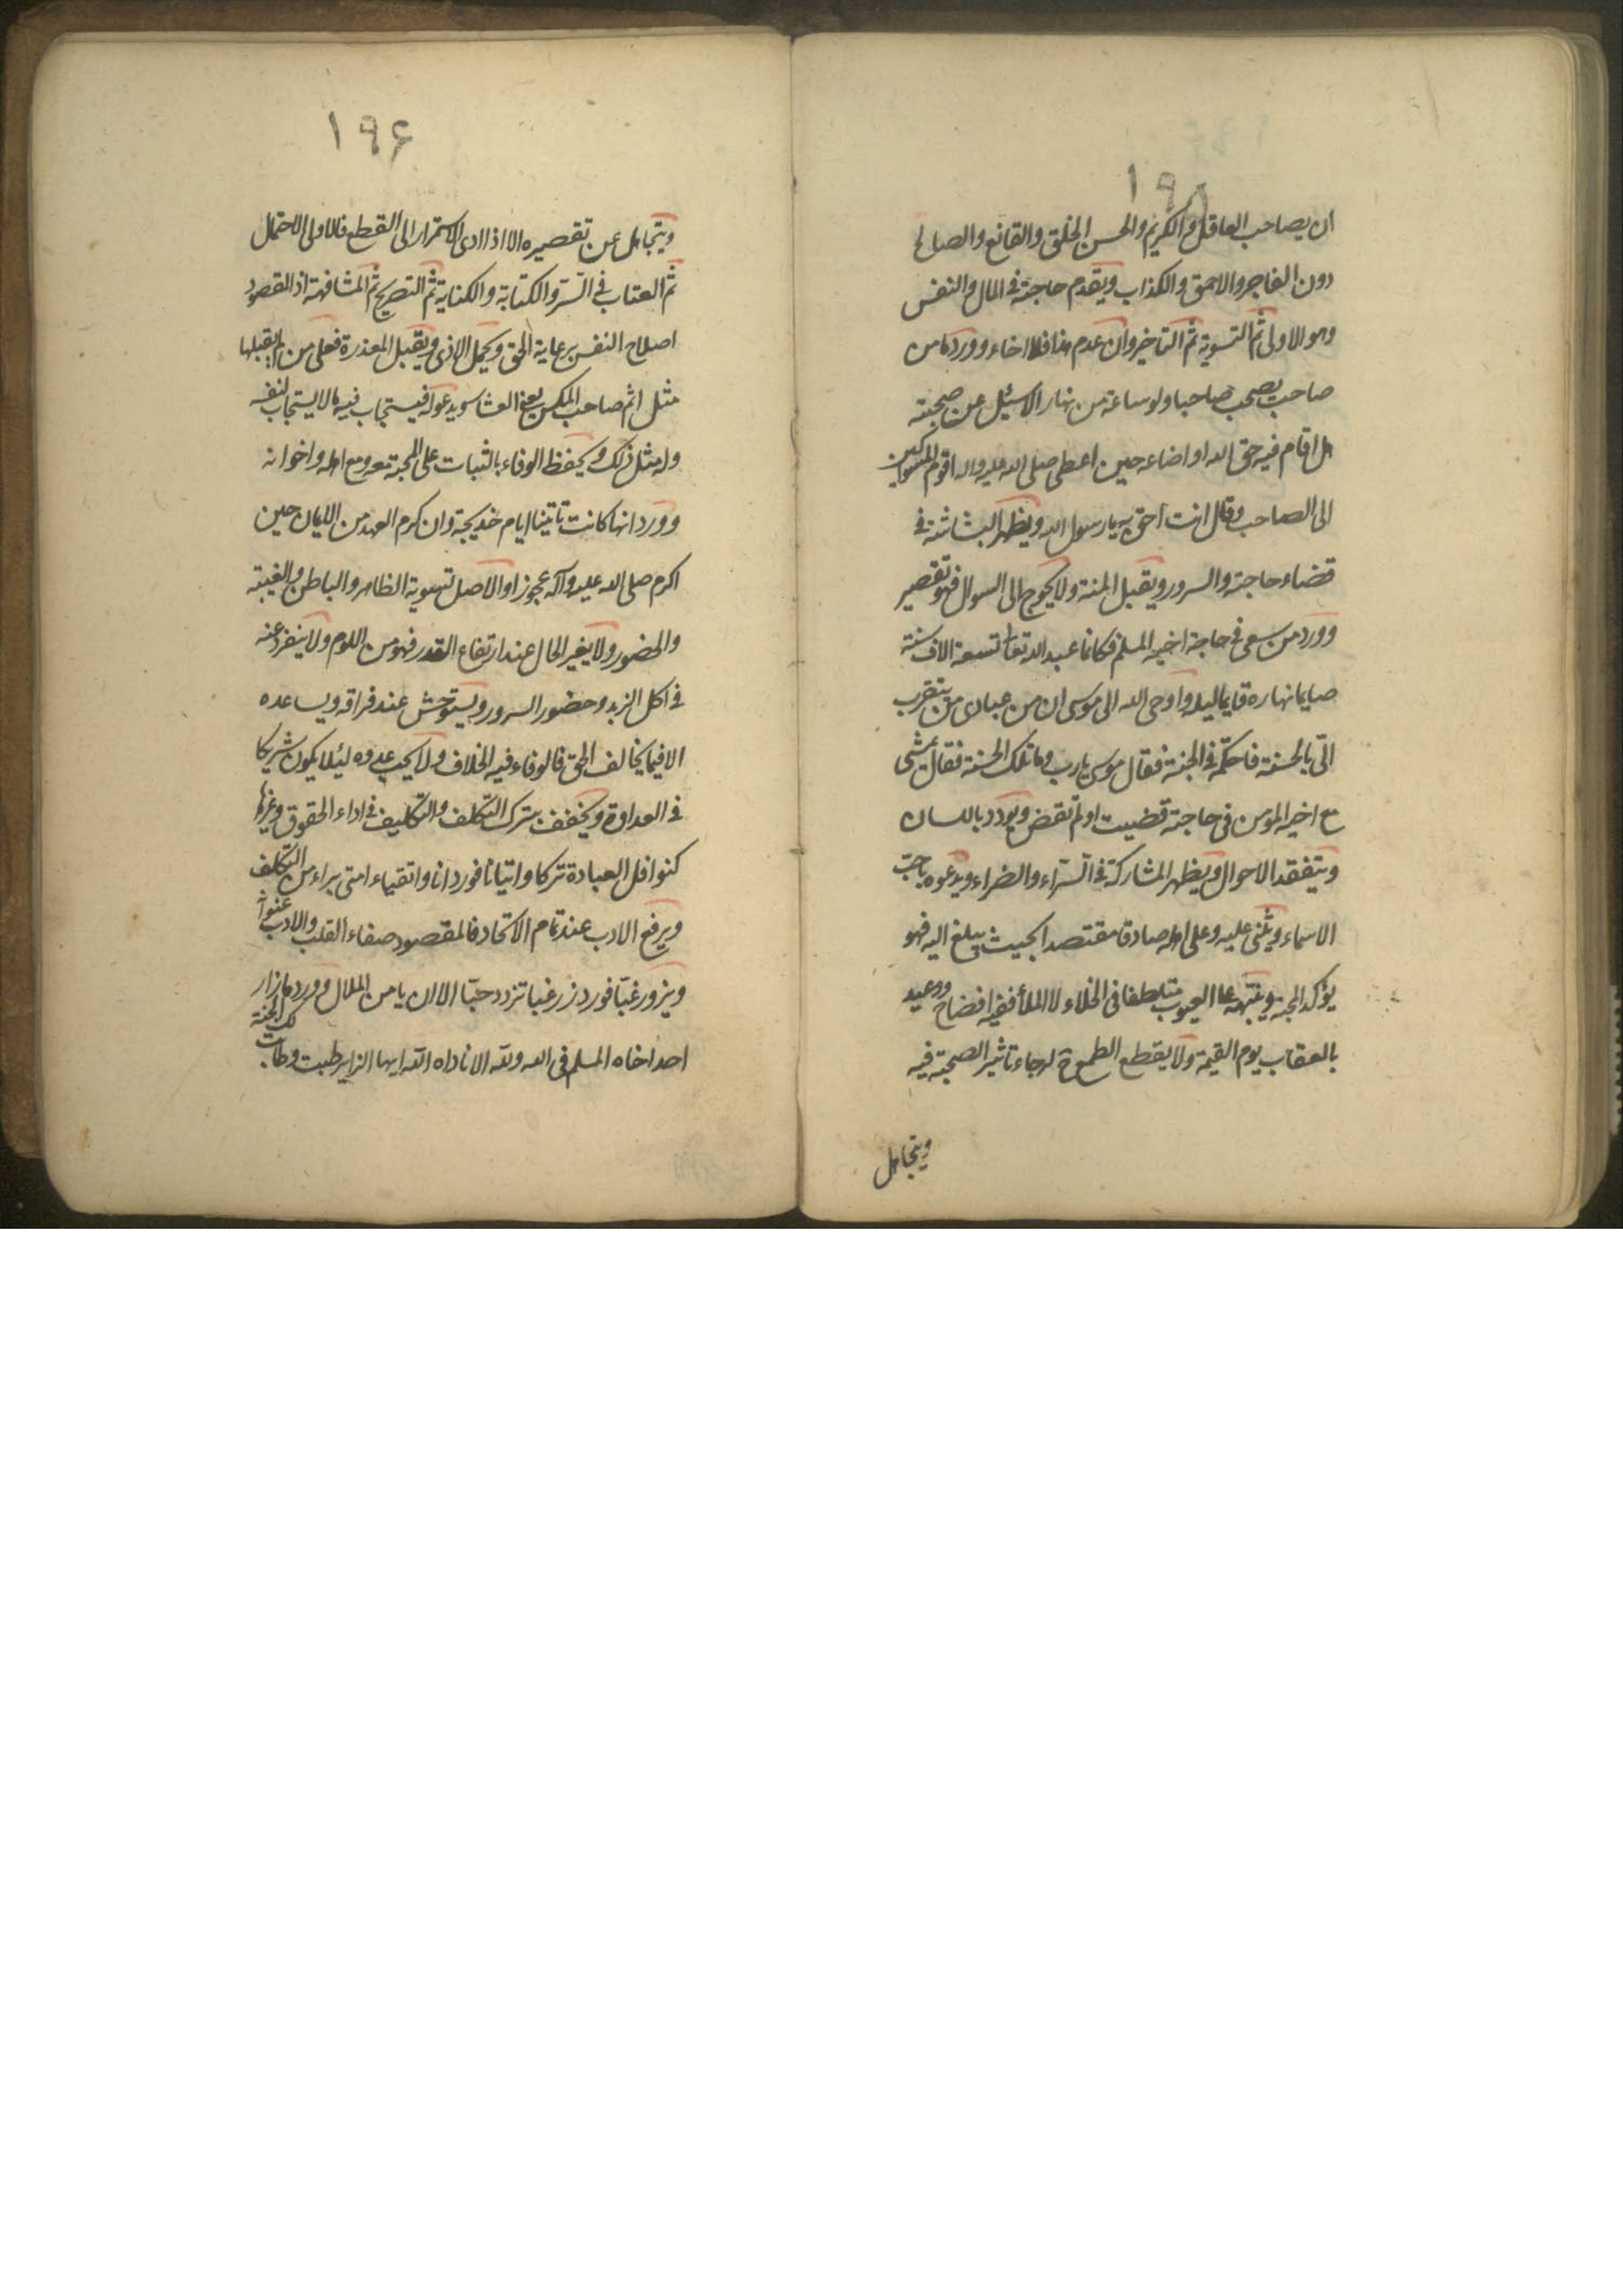 ١٩٥
ان يصاحب العاقل والكريم والحسن الخلق والقانع والصالح
دون الفاجر والاحمق والكذاب ويقدم حاجته في المال والنفس
وهو الاولى ثم التسوية ثم التاخير وان عدم هذا فلا اخاء وورد ما من
صاحب يصحب صاحبا ولو ساعة من نهار الا سئل عن صحبته
هل اقام فيه حق الله او اضاعه حين اعطى صلى الله عليه واله اقوم المسواكين
الى الصاحب وقال انت احق به يا رسول الله ويظهر البشاشة في
قضاء حاجته والسرور ويقبل المنة ولا يحوج الى السوال فهو تقصير
وورد من سعى في حاجة اخيه المسلم فكانما عبد الله تعالى تسعة الاف سنة
صايما نهاره قايما ليله واوحى الله الى موسى ان من عبادى من يتقرب
الىّ بالحسنة فاحكمه في الجنة فقال موسى يا رب وما تلك الحسنة فقال يمشى
مع اخيه المؤمن في حاجته قضيت او لم تقض ويودد باللسان
ويتفقد الاحوال ويظهر المشاركة في السّراء والضراء ويدعوه باحبّ
الاسماء ويثنى عليه وعلى اهله صادقا مقتصدا بحيث يبلغ اليه فهو
يؤكد المحبة وينبّهه على العيوب متلطفا في الخلاء لا الملأ ففيه افضاح ووعيد
بالعقاب يوم القيمة ولا يقطع الطمع لرجاء تاثير الصحبة فيه
ويتجاهل
١٩۶
ويتجاهل عن تقصيره الا اذا ادى الاستمرار الى القطع فالاولى الاحتمال
ثم العتاب في السّر والكتابة والكناية ثم التصريح ثم المشافهة اذ المقصود
اصلاح النفس برعاية الحق ويحمل الاذى ويقبل المعذرة فعلى من لم يقبلها
مثل اثم صاحب المكس يعنى العشار ويدعو له فيستجاب فيه ما لا يستجاب لنفسه
وله مثل ذلك ويحفظ الوفاء بالثبات على المحبة معه ومع اهله واخوانه
وورد انها كانت تاتينا ايام خديجة وان كرم العهد من الايمان حين
اكرم صلى الله عليه وآله عجوزا والاصل تسوية الظاهر والباطن والغيبة
والحضور ولا يغير الحال عند ارتفاع القدر فهو من اللوم ولا ينفرد عنه
في اكل الزبد وحضور السرور ويستوحش عند فراقه ويساعده
الا فيما يخالف الحق فالوفاء فيه الخلاف ولا يحب عدوه لئلا يكون شريكا
في العداوة ويخفف بترك التكلف والتكليف في اداء الحقوق وغيرها
كنوافل العبادة تركا واتيانا فورد انا واتقياء امتى براء من التكلف
ويرفع الادب عند تمام الاتحاد فالمقصود صفاء القلب والادب عنوانه
ويزور غبّا فورد زر غبا تزدد حبّا الا ان يامن الملال وورد ما زار
احد اخاه المسلم في الله ولله الا ناداه الله ايها الزاير طبت وطابت لك الجنة